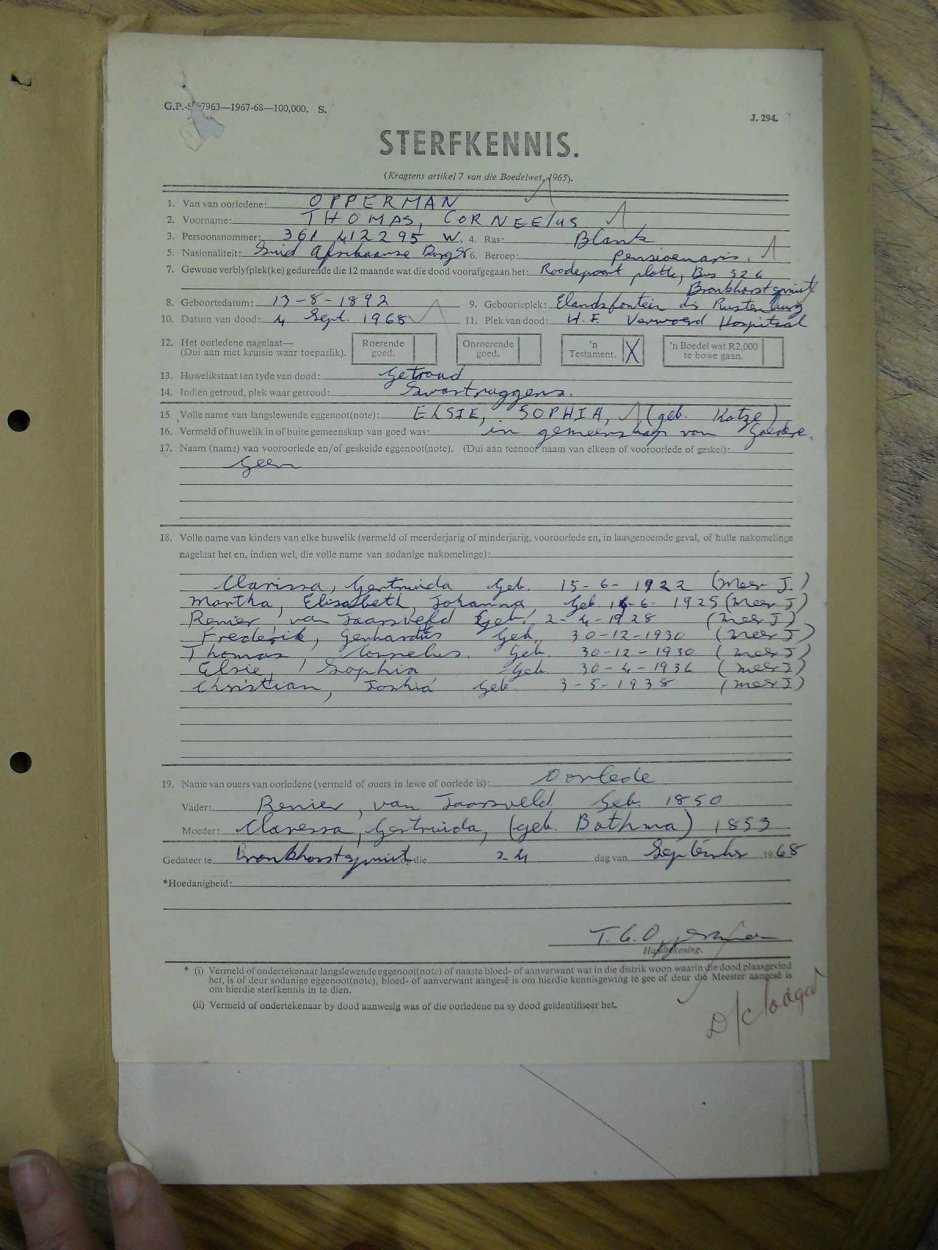 G.P.-S. 7963—1967-68—100,000. S.
J. 294.
STERFKENNIS.
(Kragtens artikel 7 van die Boedelwet, 1965).
1. Van van oorledene: OPPERMAN
2. Voorname: THOMAS, CORNEELUS
3. Persoonsnommer: 361 412295 W. 4. Ras: Blank
5. Nasionaliteit: Suid Afrikaanse Burger 6. Beroep: Pensioenaris.
7. Gewone verblyfplek(ke) gedurende die 12 maande wat die dood voorafgegaan het: Roodepoort plotte, Bus 526
Bronkhorstspruit
8. Geboortedatum: 13-8-1892 9. Geboorteplek: Elandsfontein dis Rustenburg
10. Datum van dood: 4 Sept. 1968 11. Plek van dood: H.F. Verwoerd Hospitaal
12. Het oorledene nagelaat— Roerende Onroerende 'n 'n Boedel wat R2,000
(Dui aan met kruisie waar toepaslik). goed. goed. Testament. X te bowe gaan.
13. Huwelikstaat ten tyde van dood: Getroud
14. Indien getroud, plek waar getroud: Swartruggens.
15. Volle name van langslewende eggenoot(note): ELSIE, SOPHIA, (geb. Kotze)
16. Vermeld of huwelik in of buite gemeenskap van goed was: in gemeenskap van Goedere.
17. Naam (name) van vooroorlede en/of geskeide eggenoot(note). (Dui aan teenoor naam van elkeen of vooroorlede of geskei):
Geen
18. Volle name van kinders van elke huwelik (vermeld of meerderjarig of minderjarig, vooroorlede en, in laasgenoemde geval, of hulle nakomelinge
nagelaat het en, indien wel, die volle name van sodanige nakomelinge):
Clarissa, Gertruida Geb. 15-6-1922 (Meer J.)
Martha, Elisabeth, Johanna, Geb 16-6-1925 (Meer J)
Renier van Jaarsveld Geb. 2-4-1928 (Meer J.)
Frederik, Gerhardus Geb. 30-12-1930 (Meer J)
Thomas Cornelus. Geb. 30-12-1930 (Meer J)
Elsie, Sophia Geb. 30-4-1936 (Meer J)
Christian, Joshia Geb 3-5-1938 (Meer J)
19. Name van ouers van oorledene (vermeld of ouers in lewe of oorlede is): Oorlede
Vader: Renier, van Jaarsveld Geb. 1850
Moeder: Claressa, Gertruida, (geb. Bothma) 1853
Gedateer te Bronkhorstspruit op die 24 dag van September 1968
*Hoedanigheid:
T. C. Opperman
Handtekening.
* (i) Vermeld of ondertekenaar langslewende eggenoot(note) of naaste bloed- of aanverwant wat in die distrik woon waarin die dood plaasgevind
het, is of deur sodanige eggenoot(note), bloed- of aanverwant aangesê is om hierdie kennisgewing te gee of deur die Meester aangesê is
om hierdie sterfkennis in te dien.
(ii) Vermeld of ondertekenaar by dood aanwesig was of die oorledene na sy dood geïdentifiseer het.
D/C lodged